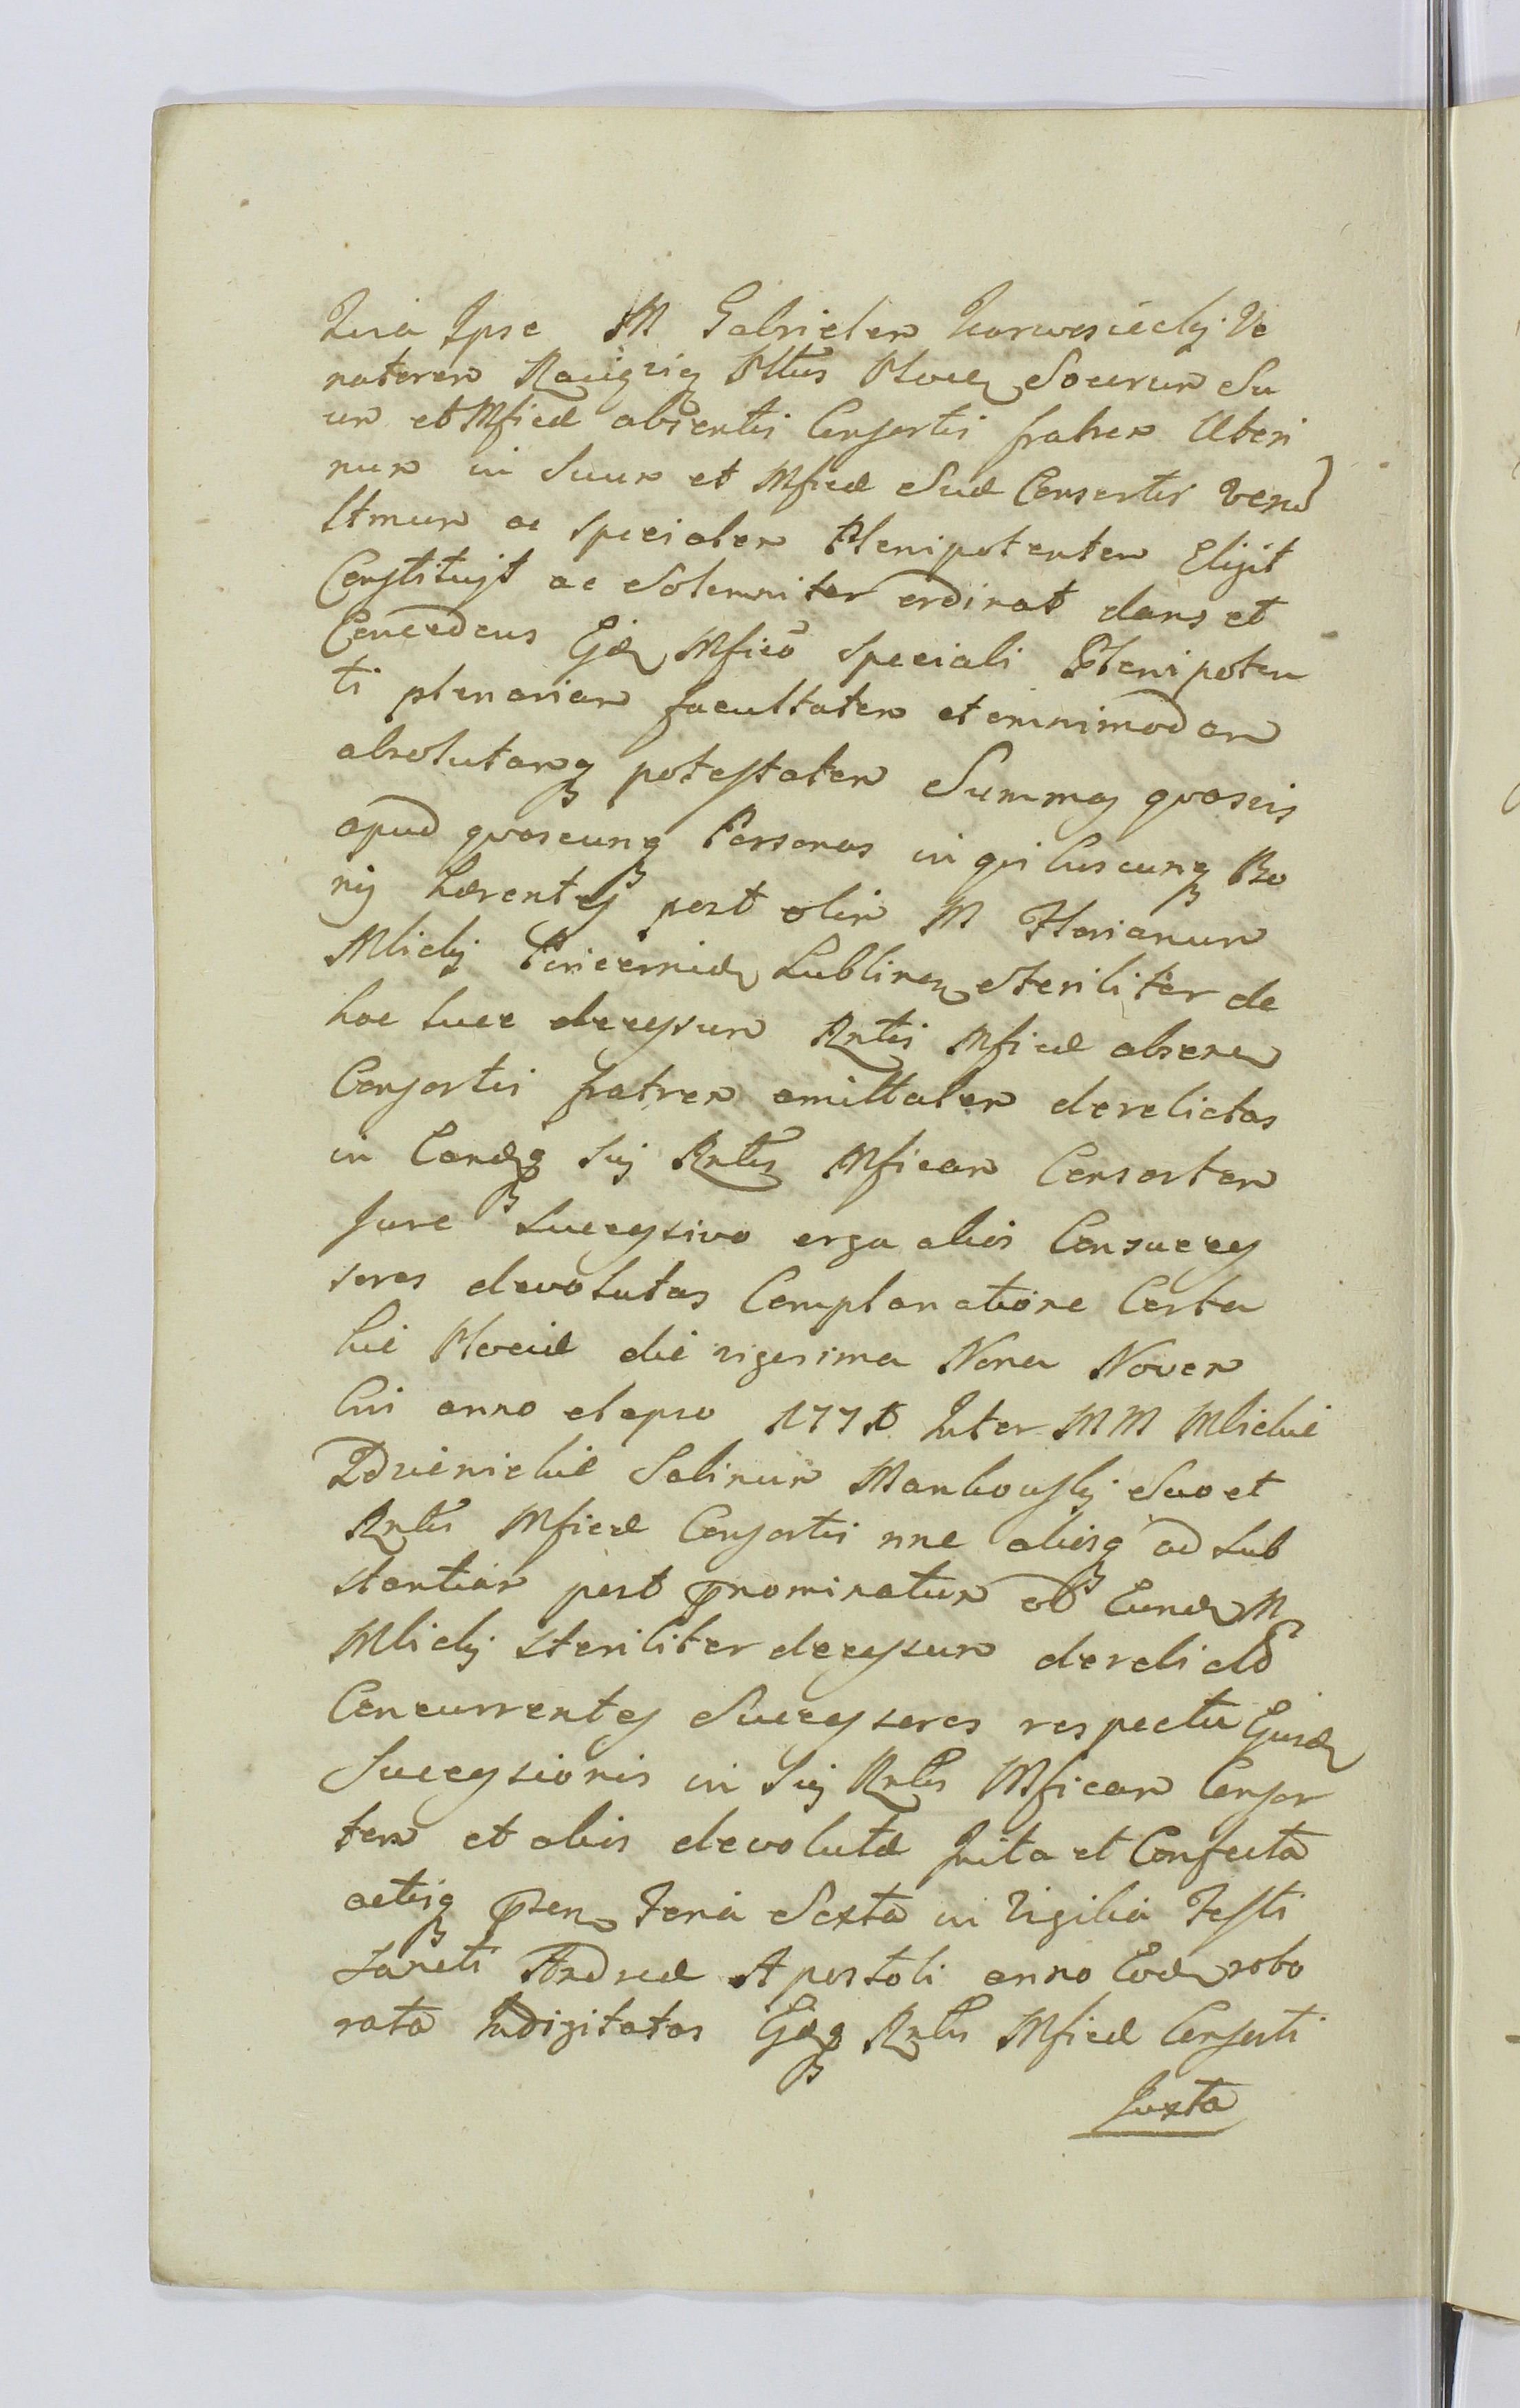 Quia Ipse M Gabrielem Karwosiecky Ve
natorem Raciąziẽ Pltus Plocẽ Socerum Su
um et Mficæ absentis Consortis fratrem Uteri
num in Suum et Mficæ Suæ Consortis verũ
ltmum ac Specialem Plenipotentem Eligit
Constituit ac Solemniter ordinat dans et
Concedens Ejdẽ Mfico Speciali Plenipoten
ti plenariam facultatem et omnimodam
absolutamq potestatem Summas qvasvis
apud qvascunq Personas in qvibuscunq Bo
nis hærentes post olim M Florianum
Mlicky Pincernidẽ Lublinẽ Steriliter de
hac luce decessum Rntis Mficæ absenẽ
Consortis fratrem amittalem derelictas
in Eandẽq Sui Rntis Mficam Consortem
Jure Successivo erga alios Consucces
sores devolutas Complanatione Certa
hic Plociæ die vigesima Nona Novem
bris anno elapso 1771 Inter MM Mlickie
Dzienickie Salinum Mankowsky Suo et
Rntis Mficæ Consortis nne aliisq ad Sub
stantiam post prnominatum ol Eundẽ M
Mlicky Steriliter decessum derelictã
Concurrentes Successores respectu Ejusdẽ
Successionis in Sui Rntis Mficam Consor
tem et alios devolutæ Inita et Confecta
actisq prsen Feria Sexta in Vigilia Festi
Sancti Andreæ Apostoli anno Eodẽ robo
rata Indigitatas Ejdẽq Rntis Mficæ Consorti
Juxta